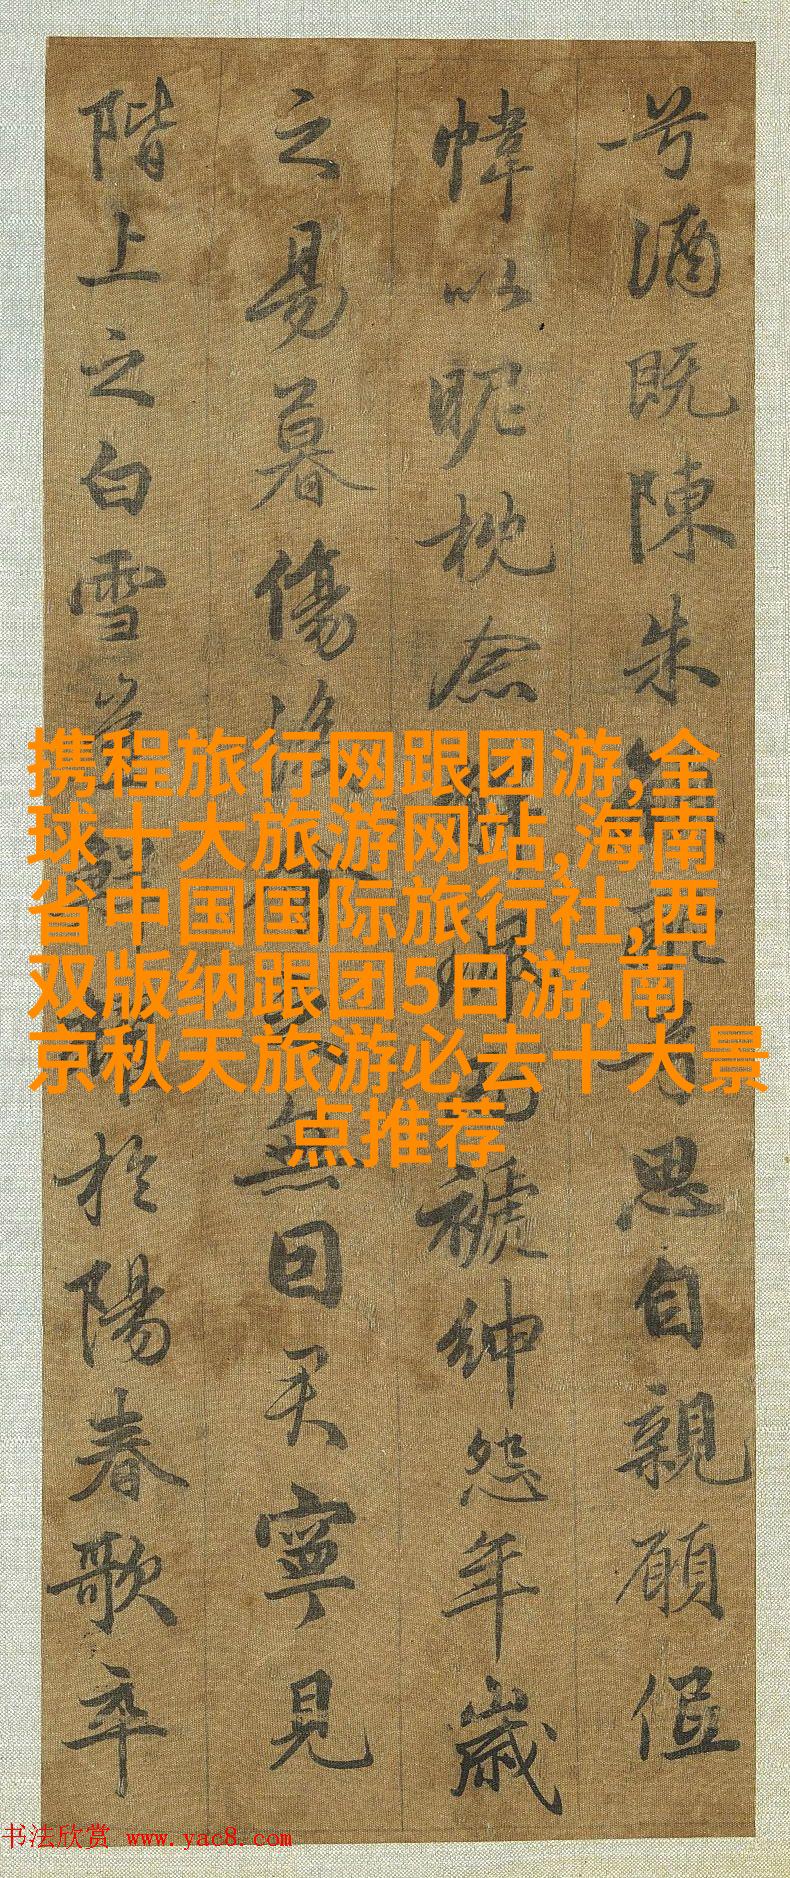 兮酒既陳朱顔酡兮思自親願低
幃以昵枕念解珮而褫紳怨年歲
之易暮傷後會之無因君寧見
階上之白雪豈鮮耀於陽春歌卒
携程旅行网跟团游,全
球十大旅游网站,海南
省中国国际旅行社,西
双版纳跟团5日游,南
京秋天旅游必去十大景
点推荐
书法欣赏 www.yac8.com